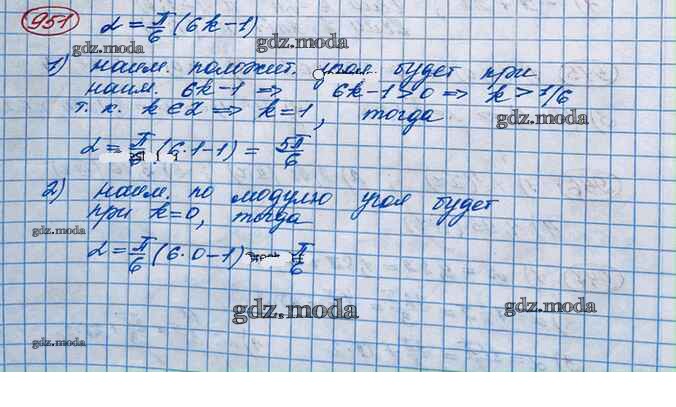 951 α = π/6 (6k-1)
gdz.moda gdz.moda
1) наим. положит. угол будет при
наим. 6k-1 ⇒ 6k-1>0 ⇒ k>1/6
т. к. k∈Z ⇒ k=1, тогда
gdz.moda gdz.moda
α = π/6 (6·1-1) = 5π/6
2) наим. по модулю угол будет
при k=0, тогда
gdz.moda
α = π/6 (6·0-1) π/6
gdz.moda gdz.moda
gdz.moda gdz.moda